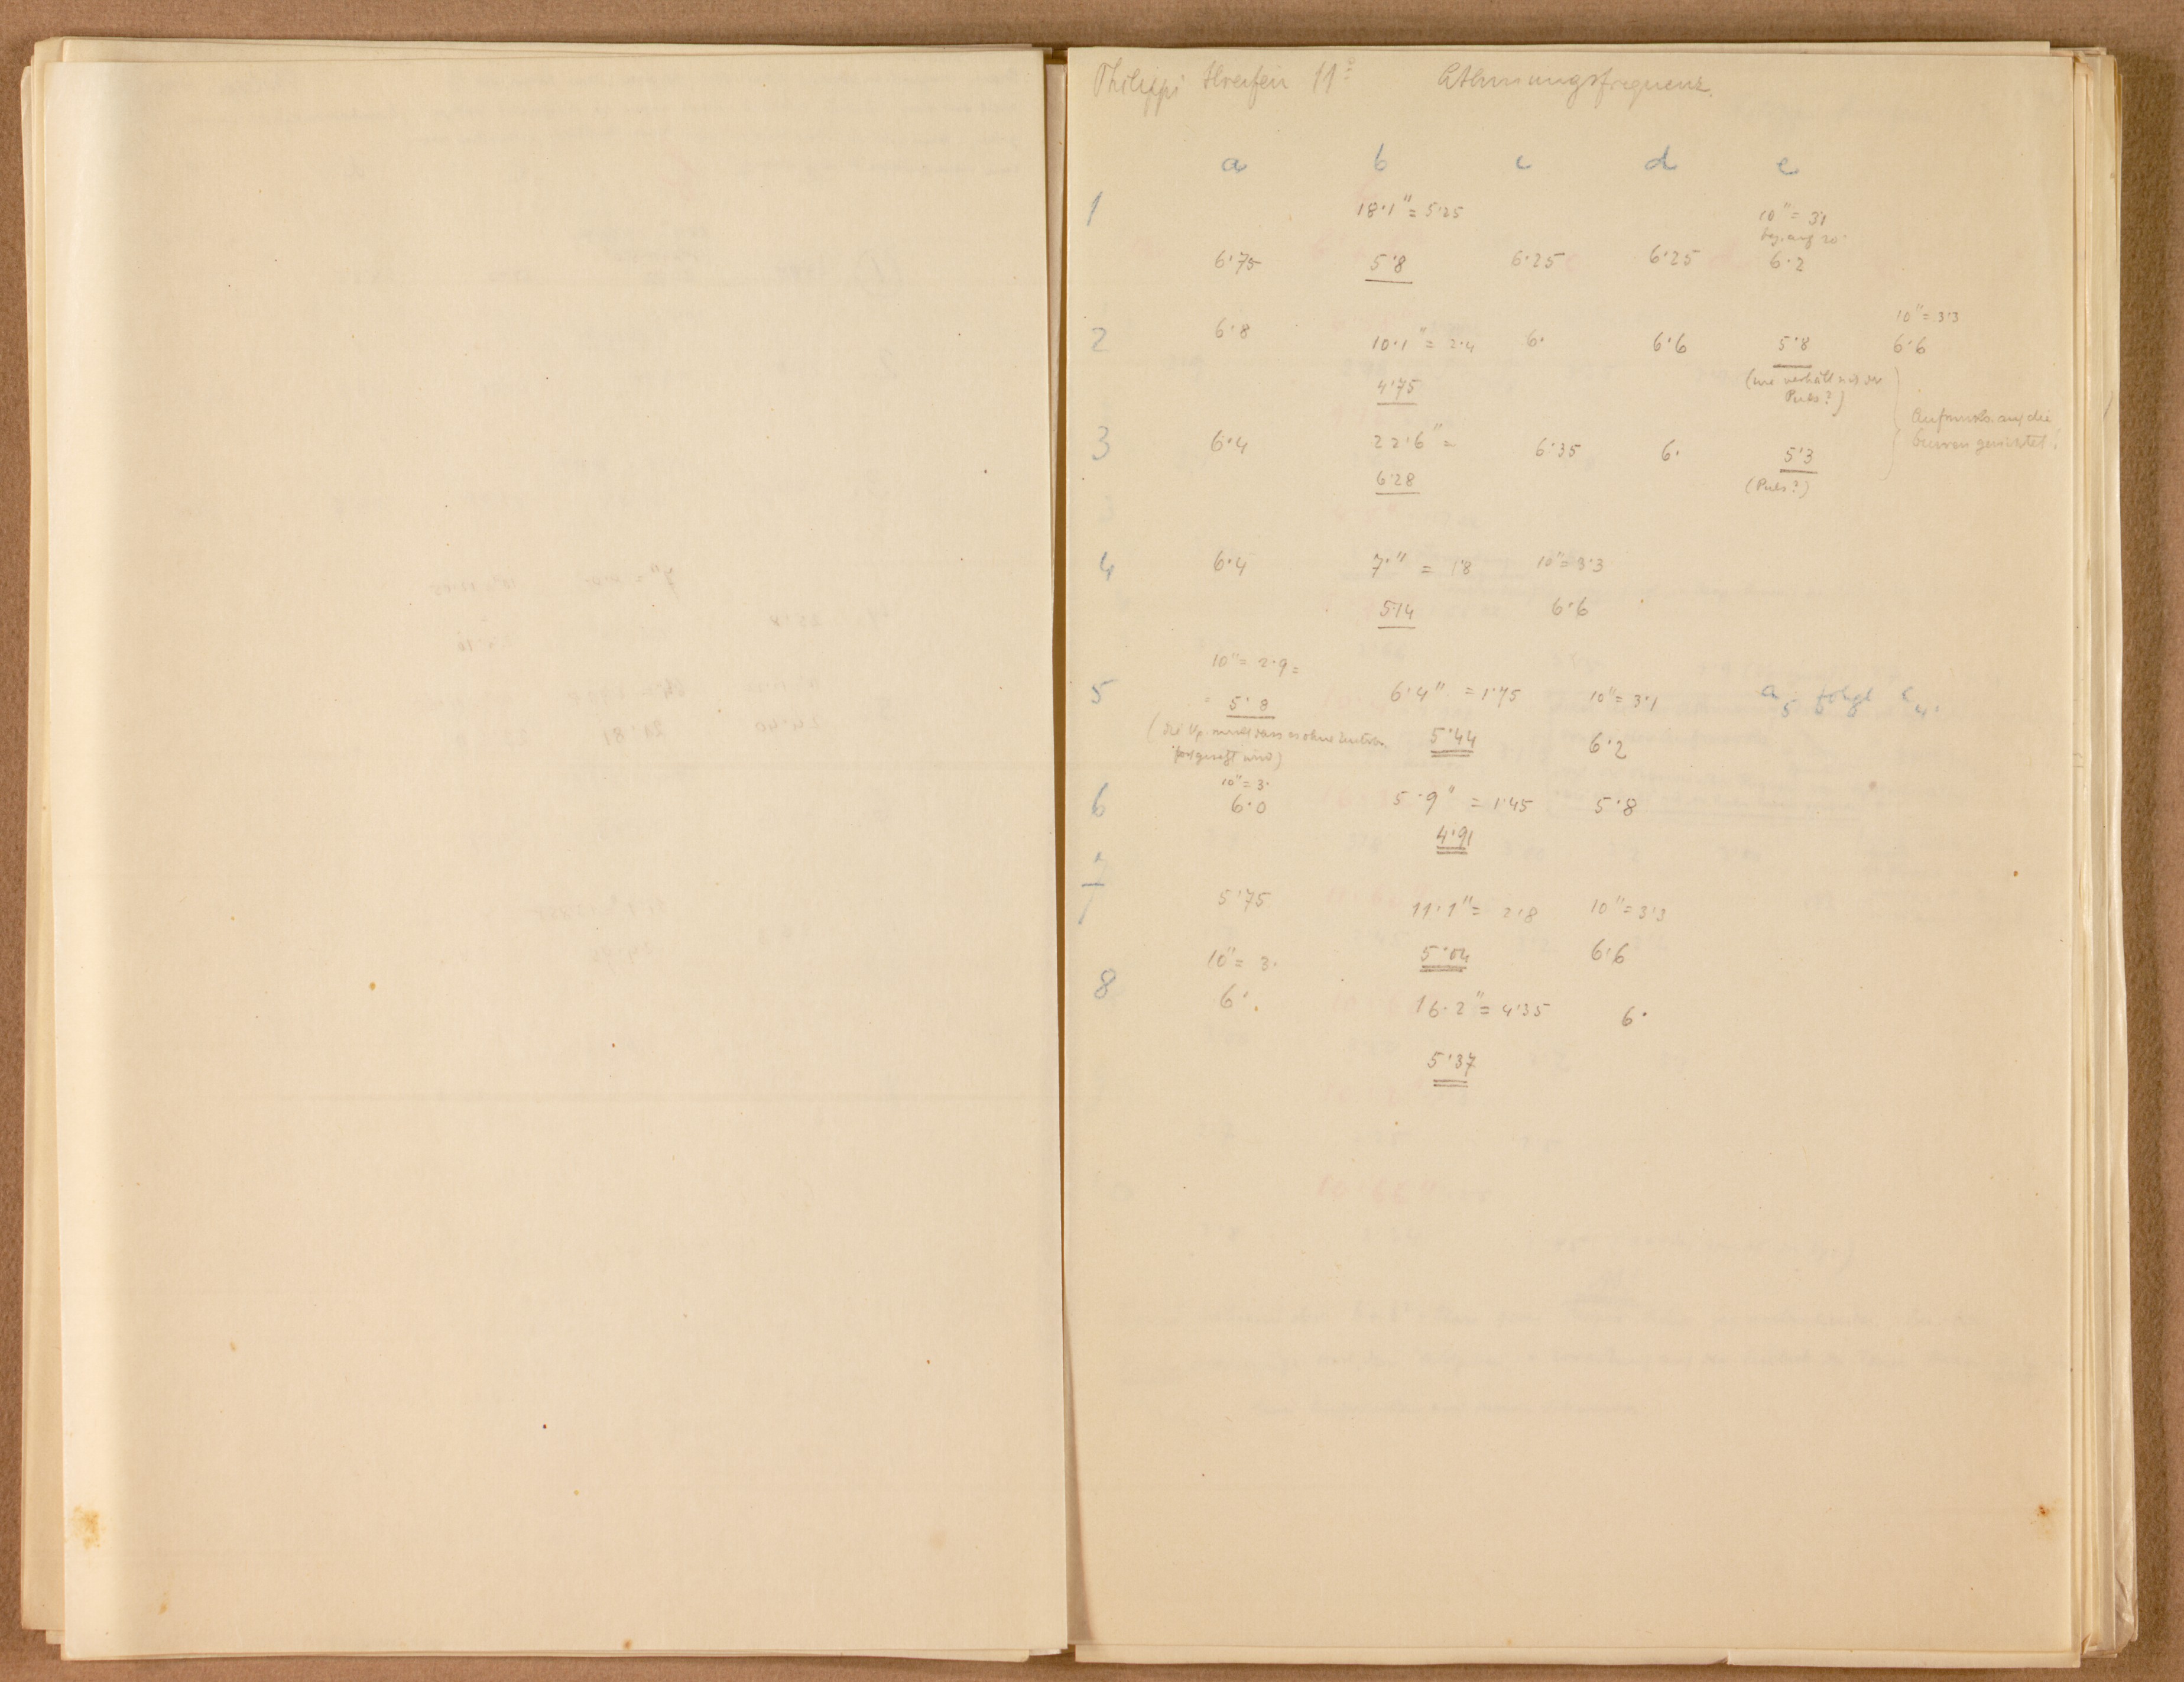 Philippi Streifen 11 Athmungsfrequenz.
a b c d e
1 18·1" = 5·25 10" = 3·1
bez. auf 20"
6·75 5·8 6·25 6·25 6·2
10" = 3·3
2 6·8 10·1" = 2·4 6· 6·6 5·8 6·6
4·75 (wie verhält sich der
Puls?)
Aufmerks. auf die
3 6·4 22·6" = 6·35 6· 5·3 Curven gerichtet!
6·28 (Puls?)
4 6·4 7·" = 1·8 10" = 3·3
5·14 6·6
10" = 2·9 =
5 = 5·8 6·4" = 1·75 10" = 3·1 a5 folgt c4.
(die Vp. dass es ohne
fortgesetzt wird) 5·44 6·2
10" = 3·
6 6·0 5·9" = 1·45 5·8
4·91
7
5·75 11·1" = 2·8 10" = 3·3
10" = 3· 5·04 6·6
8 6· 16·2" = 4·35 6·
5·37